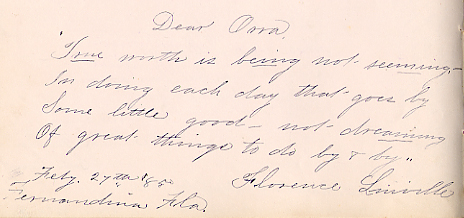 Dear Orra.
"True worth is being not seeming—
In doing each day that goes by
Some little good – not dreaming
Of great things to do by & by"
Feby. 27th '85
Florence Linville
Fernandina Fla.